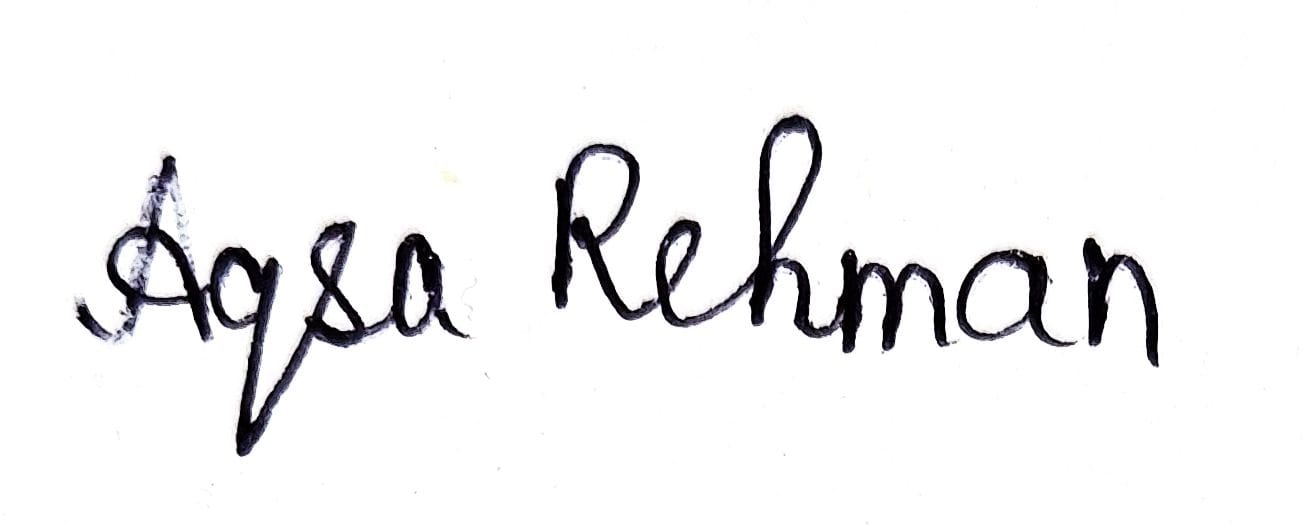 Aqsa Rehman